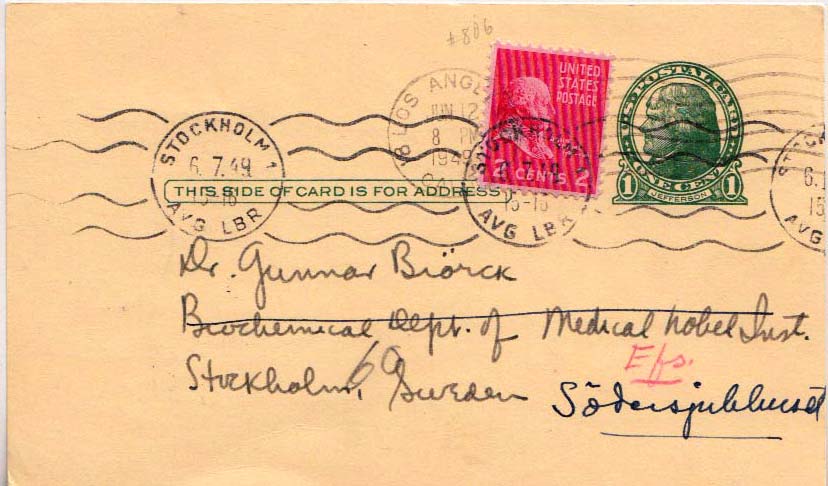 #806
UNITED
STATES
POSTAGE
2 CENTS 2
U.S. POSTAL CARD
1 ONE CENT 1
JEFFERSON
LOS ANGE
JUN 12
8 PM
1949
STOCKHOLM 1
6.7.49
15-16
AVG LBR
6.7.49
15-16
AVG LBR
STOCK
6.
15
AVG
THIS SIDE OF CARD IS FOR ADDRESS
Dr. Gunnar Biörck
Biochemical Dept. of Medical Nobel Inst.
Efs.
Stockholm, 60 Sweden
Södersjukhuset